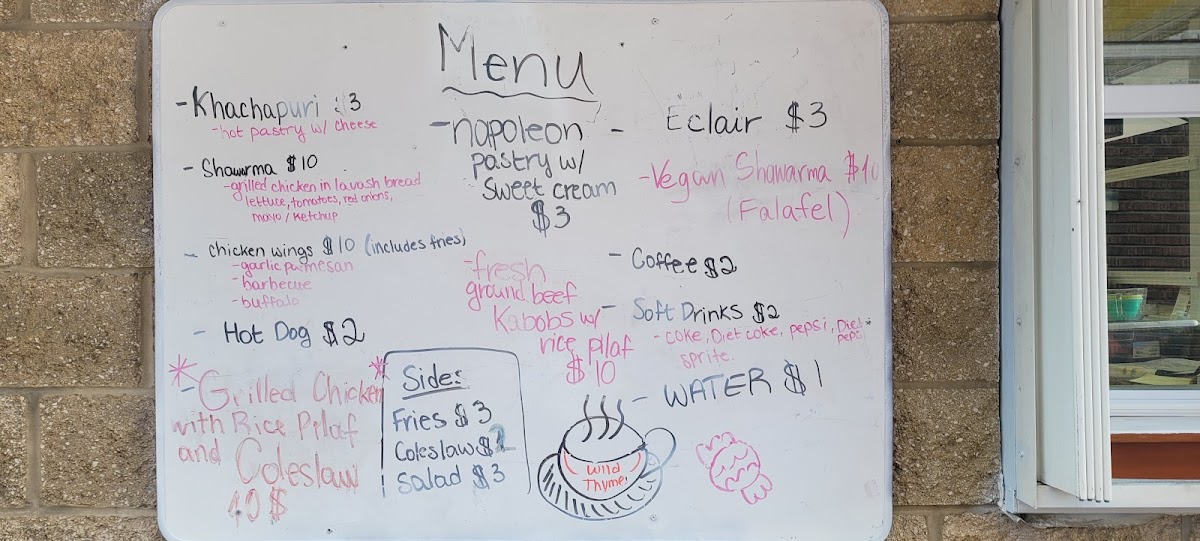 Menu
-Khachapuri $3
-hot pastry w/ cheese
- Shawrma $10
-grilled chicken in lavash bread
lettuce, tomatoes, red onions,
mayo/ketchup
- chicken wings $10 (includes fries)
-garlic parmesan
-barbecue
-buffalo
- Hot Dog $2
-Grilled Chicken
with Rice Pilaf
and Coleslaw
10$
Sides
Fries $3
Coleslaw $2
Salad $3
-napoleon
pastry w/
sweet cream
$3
-fresh
ground beef
Kabobs w/
rice pilaf
$10
- Eclair $3
-Vegan Shawarma $10
(Falafel)
- Coffee $2
- Soft Drinks $2
- coke, Diet coke, pepsi, Diet pepsi
sprite.
- WATER $1
Wild
Thyme!